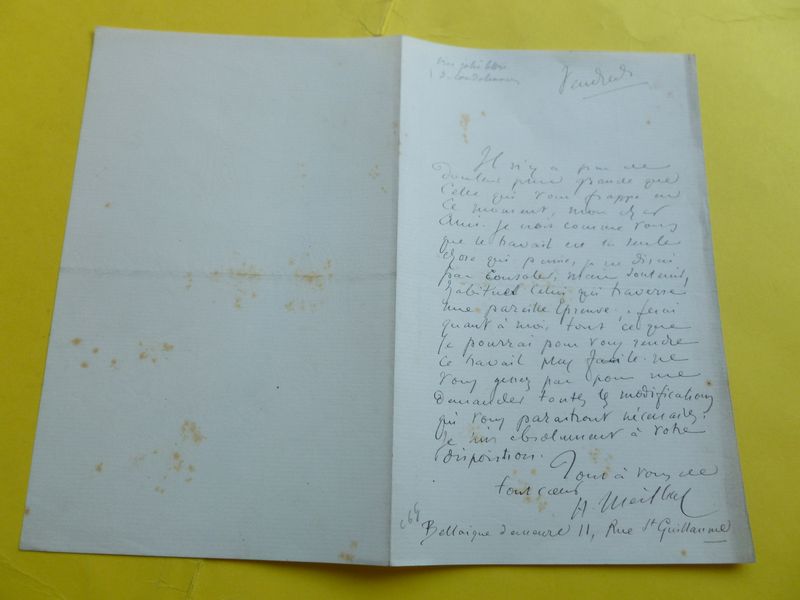 très jolie lettre
de condoléances
Vendredi
Il n'y a pas de
douleur plus grande que
celle qui vous frappe en
ce moment, mon cher
ami. Je crois comme vous
que le travail est la seule
chose qui puisse, je ne dirai
pas consoler, mais soutenir,
celui qui traverse
une pareille épreuve. Je ferai
quant à moi, tout ce que
je pourrai pour vous rendre
ce travail plus facile. ne
vous gênez pas pour me
demander toutes les modifications
qui vous paraîtront nécessaires.
Je suis absolument à votre
disposition.
Tout à vous de
tout coeur
H. Meilhac
Bellaigue demeure 11, Rue St Guillaume